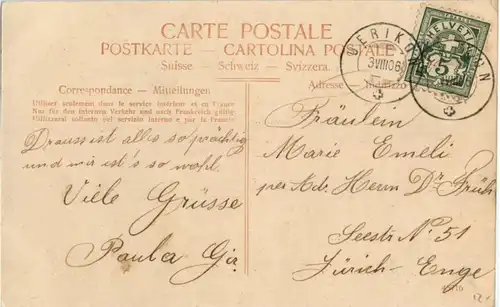 CARTE POSTALE
POSTKARTE — CARTOLINA POSTALE
Suisse — Schweiz — Svizzera.
Correspondance — Mitteilungen
Adresse — Indirizzo
Utiliser seulement dans le service intérieur et en France
Nur für den internen Verkehr und nach Frankreich gültig
Utilizzarsi soltanto pel servizio interno e per la Francia
HELVETIA
5
3 VIII 06
Drauss ist alles so prächtig
und mir ist's so wohl.
Viele Grüsse
Paula
Fräulein
Marie Emeli
per Ad. Herrn Dr. Früh
Seestr No. 51
Zürich-Enge